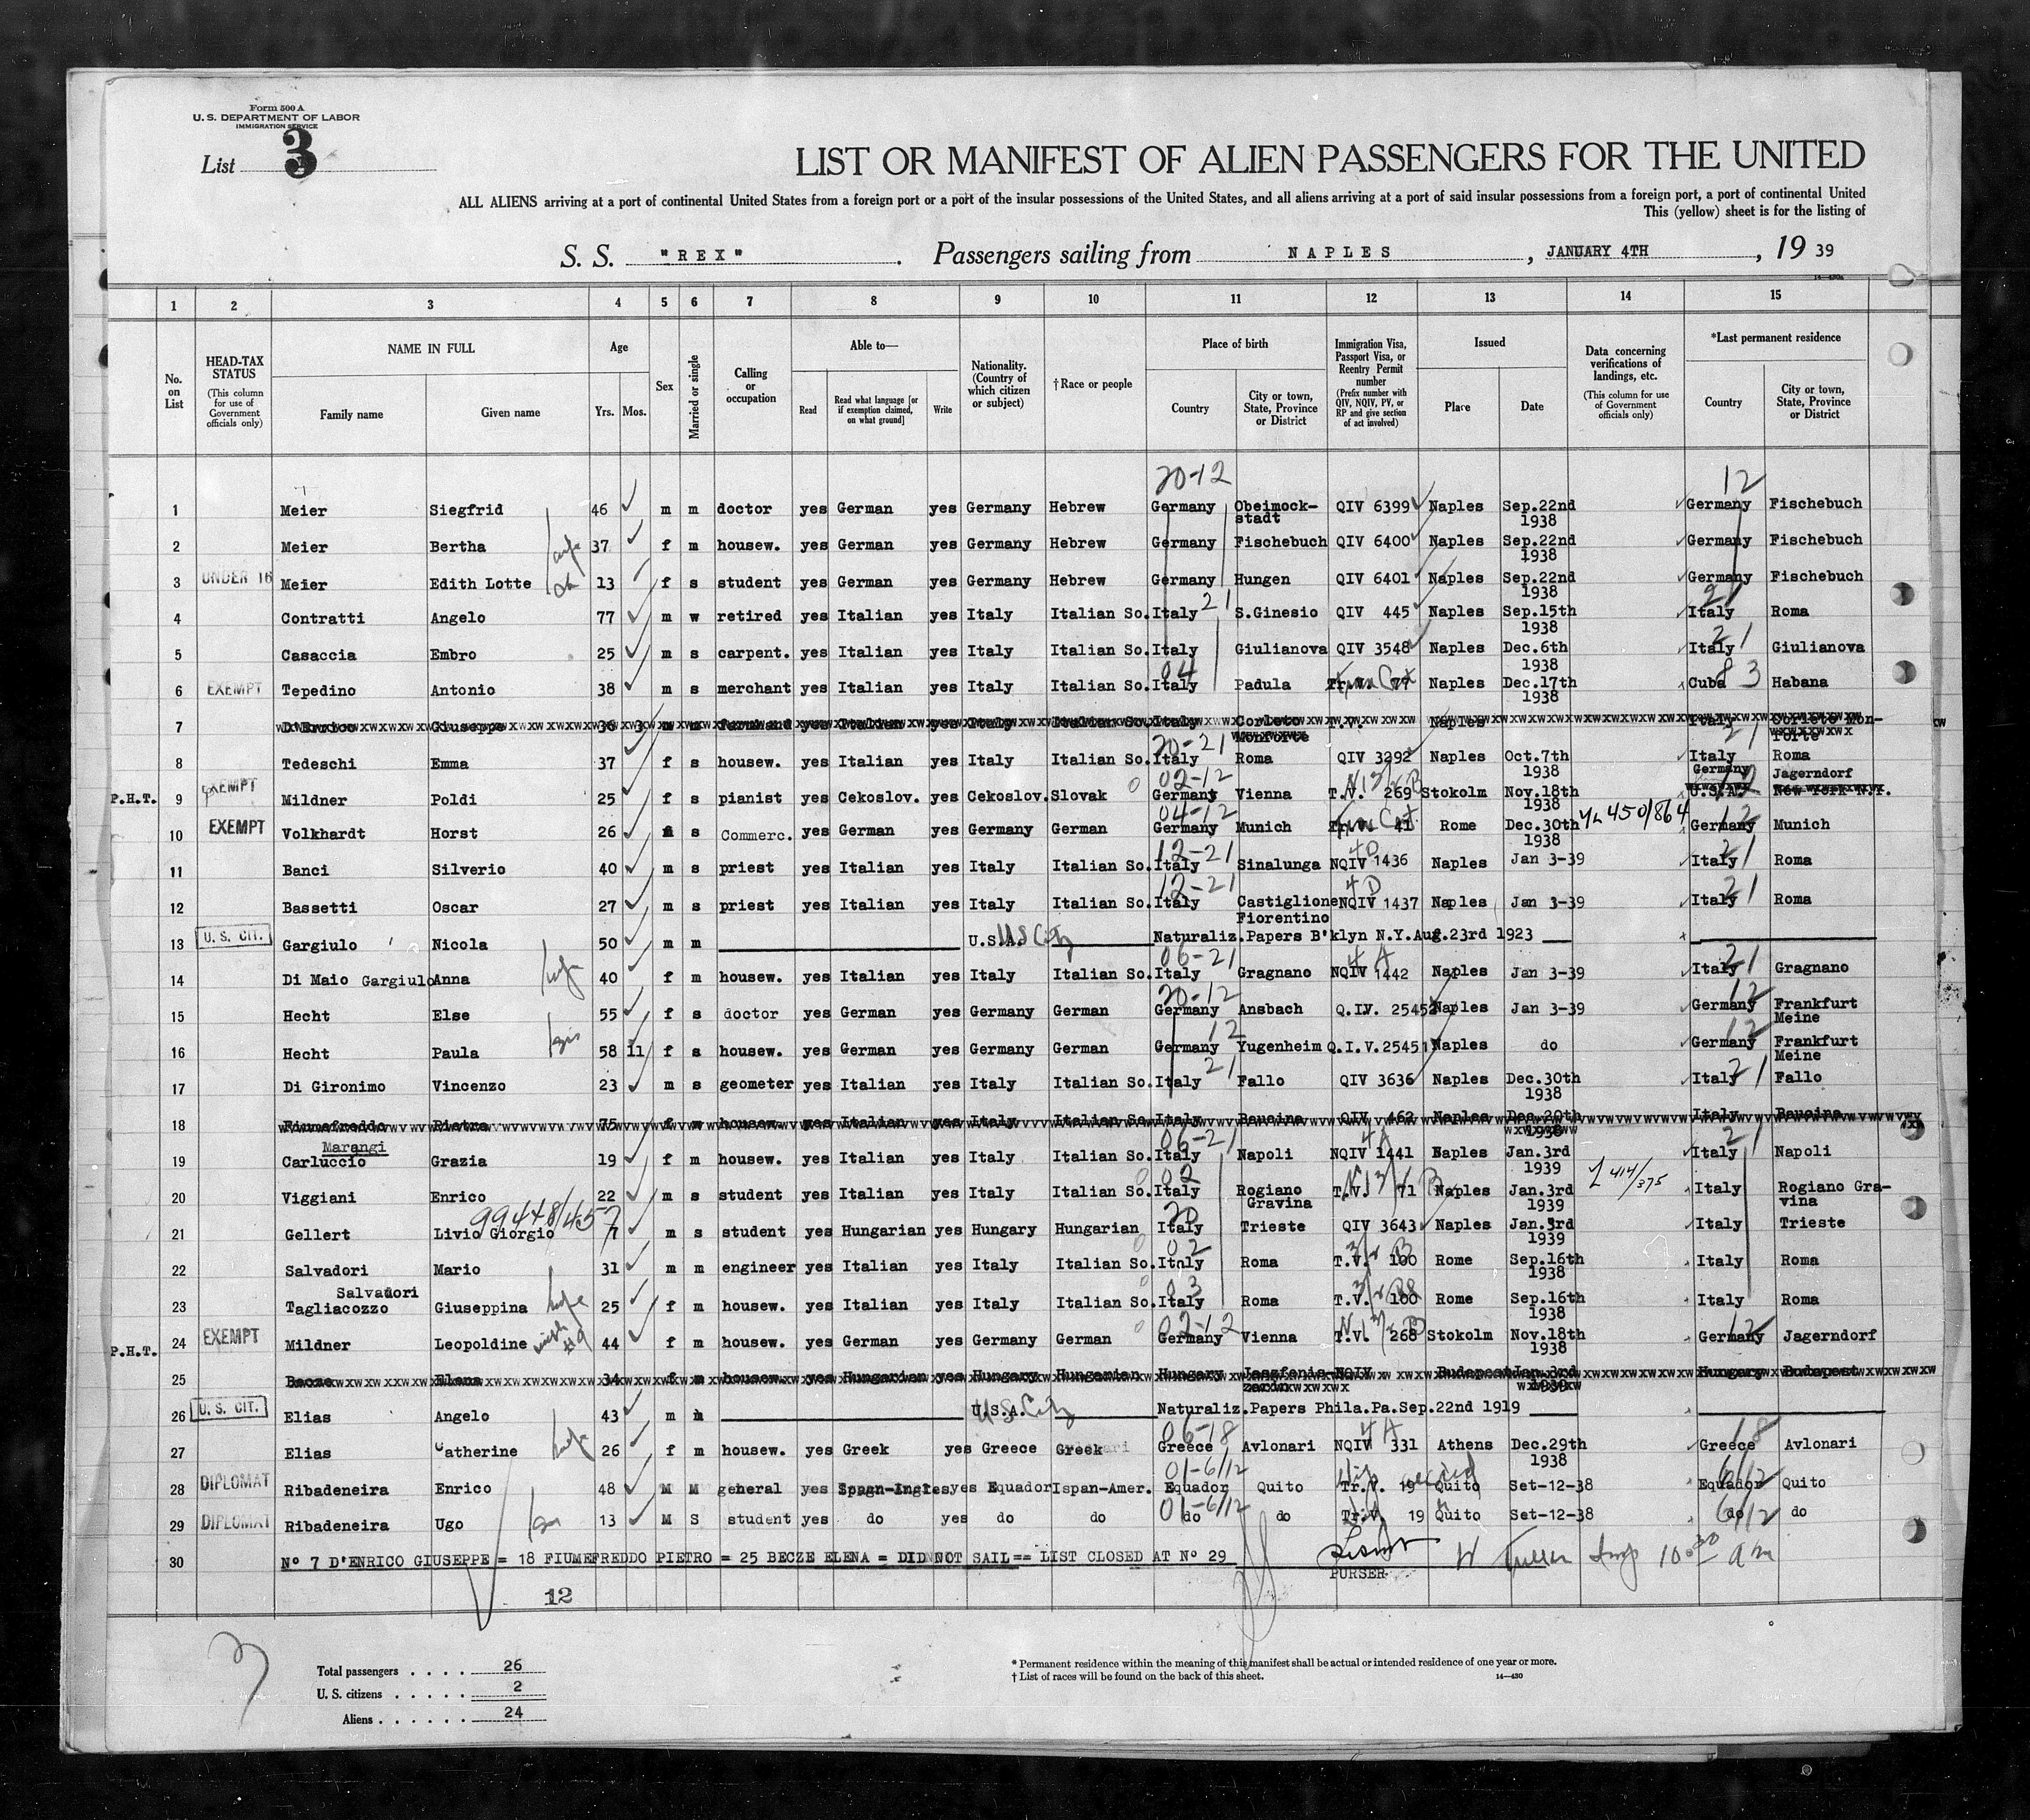 Form 500 A
U. S. DEPARTMENT OF LABOR
IMMIGRATION SERVICE
List 3
LIST OR MANIFEST OF ALIEN PASSENGERS FOR THE UNITED
ALL ALIENS arriving at a port of continental United States from a foreign port or a port of the insular possessions of the United States, and all aliens arriving at a port of said insular possessions from a foreign port, a port of continental United
This (yellow) sheet is for the listing of
S. S. "REX". Passengers sailing from NAPLES, JANUARY 4TH, 19 39
1 2 3 4 5 6 7 8 9 10 11 12 13 14 15
No. on List
HEAD-TAX STATUS (This column for use of Government officials only)
NAME IN FULL Family name Given name
Age Yrs. Mos.
Sex
Married or single
Calling or occupation
Able to— Read Read what language [or if exemption claimed, on what ground] Write
Nationality. (Country of which citizen or subject)
†Race or people
Place of birth Country City or town, State, Province or District
Immigration Visa, Passport Visa, or Reentry Permit number (Prefix number with QIV, NQIV, PV, or RP and give section of act involved)
Issued Place Date
Data concerning verifications of landings, etc. (This column for use of Government officials only)
*Last permanent residence Country City or town, State, Province or District
20-12 12
1 Meier Siegfrid 46 m m doctor yes German yes Germany Hebrew Germany Obeimock-stadt QIV 6399 Naples Sep.22nd 1938 Germany Fischebuch
2 Meier Bertha wife 37 f m housew. yes German yes Germany Hebrew Germany Fischebuch QIV 6400 Naples Sep.22nd 1938 Germany Fischebuch
3 UNDER 16 Meier Edith Lotte 13 f s student yes German yes Germany Hebrew Germany Hungen QIV 6401 Naples Sep.22nd 1938 Germany Fischebuch
4 Contratti Angelo 77 m w retired yes Italian yes Italy Italian So. Italy 21 S.Ginesio QIV 445 Naples Sep.15th 1938 21 Italy Roma
5 Casaccia Embro 25 m s carpent. yes Italian yes Italy Italian So. Italy Giulianova QIV 3548 Naples Dec.6th 1938 21 Italy Giulianova
6 EXEMPT Tepedino Antonio 38 m s merchant yes Italian yes Italy Italian So. 04 Italy Padula 77 Naples Dec.17th 1938 83 Cuba Habana
7 D'Enrico Giuseppe 36 3 m m farmhand yes Italian yes Italy Italian So. Italy Corleto Monforte T.V. Naples Italy Corleto Mon-forte
8 Tedeschi Emma 37 f s housew. yes Italian yes Italy Italian So. 20-21 Italy Roma QIV 3292 Naples Oct.7th 1938 21 Italy Roma
P.H.T. 9 EXEMPT Mildner Poldi 25 f s pianist yes Cekoslov. yes Cekoslov. Slovak 02-12 Germany Vienna T.V. 269 Stokolm Nov.18th 1938 Germany Jagerndorf U.S.A. New York N.Y.
10 EXEMPT Volkhardt Horst 26 s Commerc. yes German yes Germany German 04-12 Germany Munich 41 Rome Dec.30th 1938 450/864 12 Germany Munich
11 Banci Silverio 40 m s priest yes Italian yes Italy Italian So. 12-21 Italy Sinalunga 4D NQIV 1436 Naples Jan 3-39 21 Italy Roma
12 Bassetti Oscar 27 m s priest yes Italian yes Italy Italian So. 12-21 Italy Castiglione Fiorentino 4D NQIV 1437 Naples Jan 3-39 21 Italy Roma
13 U. S. CIT. Gargiulo Nicola 50 m m U.S.A. Naturaliz.Papers B'klyn N.Y.Aug.23rd 1923
14 Di Maio Gargiulo Anna wife 40 f m housew. yes Italian yes Italy Italian So. 06-21 Italy Gragnano 4A NQIV 1442 Naples Jan 3-39 21 Italy Gragnano
15 Hecht Else 55 f s doctor yes German yes Germany German 20-12 Germany Ansbach Q.I.V. 25452 Naples Jan 3-39 12 Germany Frankfurt Meine
16 Hecht Paula sis 58 11 f s housew. yes German yes Germany German 12 Germany Yugenheim Q.I.V.25451 Naples do 12 Germany Frankfurt Meine
17 Di Gironimo Vincenzo 23 m s geometer yes Italian yes Italy Italian So. 21 Italy Fallo QIV 3636 Naples Dec.30th 1938 21 Italy Fallo
18 Fiumefreddo Pietra 75 f w housew. yes Italian yes Italy Italian So. Italy Baucina QIV 462 Naples Dec.20th 1938 Italy Baucina
19 Marangi Carluccio Grazia 19 f m housew. yes Italian yes Italy Italian So. 06-21 Italy Napoli 4A NQIV 1441 Naples Jan.3rd 1939 21 Italy Napoli
20 Viggiani Enrico 22 m s student yes Italian yes Italy Italian So. 02 Italy Rogiano Gravina T.V. 71 Naples Jan.3rd 1939 414/375 Italy Rogiano Gra-vina
99448/457
21 Gellert Livio Giorgio 7 m s student yes Hungarian yes Hungary Hungarian 20 Italy Trieste QIV 3643 Naples Jan.3rd 1939 Italy Trieste
22 Salvadori Mario 31 m m engineer yes Italian yes Italy Italian So. 02 Italy Roma T.V. 100 Rome Sep.16th 1938 Italy Roma
23 Salvadori Tagliacozzo Giuseppina wife 25 f m housew. yes Italian yes Italy Italian So. 03 Italy Roma T.V. 100 Rome Sep.16th 1938 Italy Roma
P.H.T. 24 EXEMPT Mildner Leopoldine with #9 44 f m housew. yes German yes Germany German 02-12 Germany Vienna T.V. 268 Stokolm Nov.18th 1938 12 Germany Jagerndorf
25 Becze Elena 34 f m housew. yes Hungarian yes Hungary Hungarian Hungary NQIV Budapest Jan.3rd 1939 Hungary Budapest
26 U. S. CIT. Elias Angelo 43 m m U.S.A. Naturaliz.Papers Phila.Pa.Sep.22nd 1919
27 Elias Catherine wife 26 f m housew. yes Greek yes Greece Greek 06-18 Greece Avlonari 4A NQIV 331 Athens Dec.29th 1938 18 Greece Avlonari
28 DIPLOMAT Ribadeneira Enrico 48 M M general yes Spagn-Ingles yes Equador Ispan-Amer. 01-6/12 Equador Quito Tr.V. 19 Quito Set-12-38 6/12 Equador Quito
29 DIPLOMAT Ribadeneira Ugo son 13 M S student yes do yes do do 01-6/12 do do Tr.V. 19 Quito Set-12-38 6/12 do do
30 Nº 7 D'ENRICO GIUSEPPE = 18 FIUMEFREDDO PIETRO = 25 BECZE ELENA = DID NOT SAIL == LIST CLOSED AT Nº 29
PURSER
12
Total passengers . . . . 26
U. S. citizens . . . . . 2
Aliens . . . . . . 24
* Permanent residence within the meaning of this manifest shall be actual or intended residence of one year or more.
† List of races will be found on the back of this sheet. 14—430